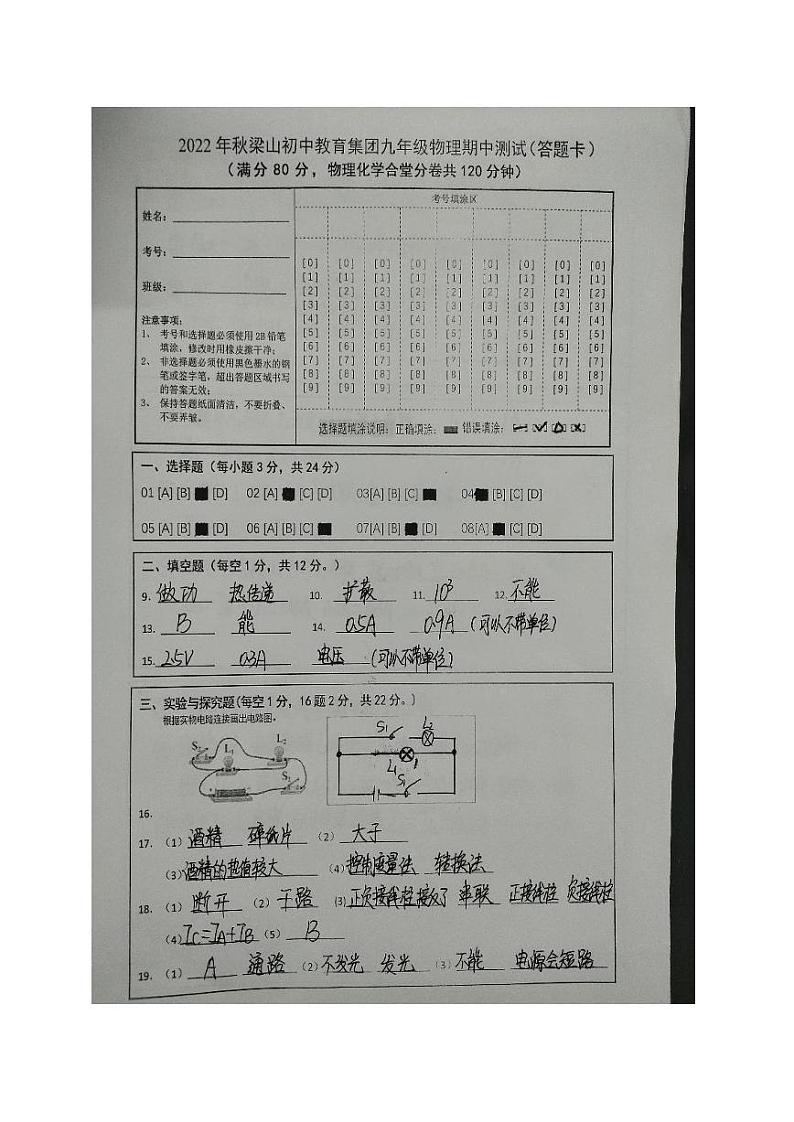 2022年秋梁山初中教育集团九年级物理期中测试(答题卡)
(满分 80 分，物理化学合堂分卷共 120 分钟)
姓名：
考号：
班级：
注意事项：
1、 考号和选择题必须使用 2B 铅笔
填涂，修改时用橡皮擦干净；
2、 非选择题必须使用黑色墨水的钢
笔或签字笔，超出答题区域书写
的答案无效；
3、 保持答题纸面清洁，不要折叠、
不要弄皱。
考号填涂区
[0] [0] [0] [0] [0] [0] [0] [0] [0]
[1] [1] [1] [1] [1] [1] [1] [1] [1]
[2] [2] [2] [2] [2] [2] [2] [2] [2]
[3] [3] [3] [3] [3] [3] [3] [3] [3]
[4] [4] [4] [4] [4] [4] [4] [4] [4]
[5] [5] [5] [5] [5] [5] [5] [5] [5]
[6] [6] [6] [6] [6] [6] [6] [6] [6]
[7] [7] [7] [7] [7] [7] [7] [7] [7]
[8] [8] [8] [8] [8] [8] [8] [8] [8]
[9] [9] [9] [9] [9] [9] [9] [9] [9]
选择题填涂说明：正确填涂： 错误填涂：
一、选择题（每小题 3 分，共 24 分）
01 [A] [B] [D] 02 [A] [C] [D] 03[A] [B] [C] 04 [B] [C] [D]
05 [A] [B] [D] 06 [A] [B] [C] 07[A] [B] [D] 08[A] [C] [D]
二、填空题（每空 1 分，共 12 分。）
9. 做功 热传递 10. 扩散 11. 10³ 12. 不能
13. B 能 14. 0.5A 0.9A (可以不带单位)
15. 2.5V 0.3A 电压 (可以不带单位)
三、实验与探究题(每空 1 分，16 题 2 分，共 22 分。)
根据实物电路连接画出电路图。
S₂ L₁ L₂ S₁
S₁ L₂
L₁
S₁
16.
17. (1) 酒精 碎纸片 (2) 大于
(3) 酒精的热值较大 (4) 控制变量法 转换法
18. (1) 断开 (2) 干路 (3) 正负接线柱接反了 串联 正接线柱 负接线柱
(4) IC=IA+IB (5) B
19. (1) A 通路 (2) 不发光 发光 (3) 不能 电源会短路